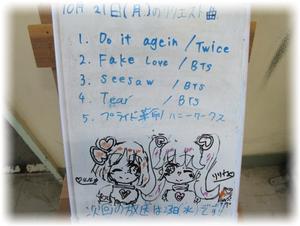 10月21日(月)のリクエスト曲
1. Do it agein / Twice
2. Fake Love / BTS
3. seesaw / BTS
4. Tear / BTS
5. プライド革命 / ハニーワークス
次回の放送は 水)です!